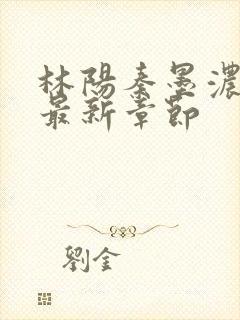 林陽秦墨濃
最新章節
劉金